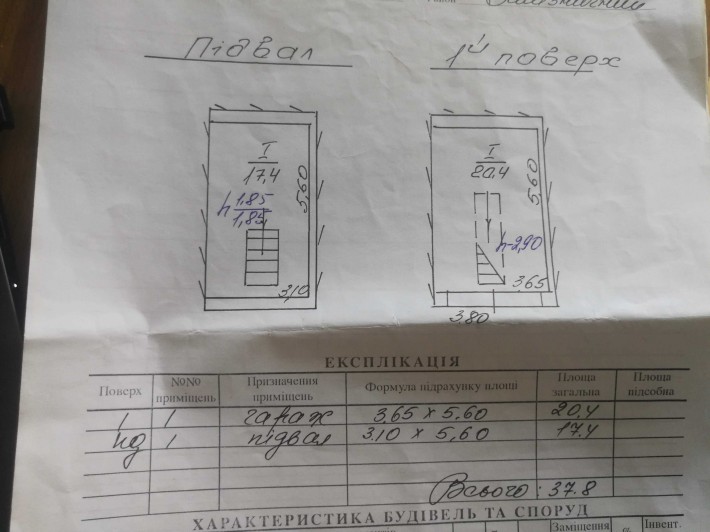 Підвал
1й поверх
I
17,4
5,60
h 1,85
1,85
3,10
I
20,4
5,60
h-2,90
3,65
3,80
ЕКСПЛІКАЦІЯ
Поверх №№ приміщень Призначення приміщень Формула підрахунку площі Площа загальна Площа підсобна
1 1 гараж 3,65 х 5,60 20,4
пд 1 підвал 3,10 х 5,60 17,4
Всього: 37.8
ХАРАКТЕРИСТИКА БУДІВЕЛЬ ТА СПОРУД
Заміщення Інвент.